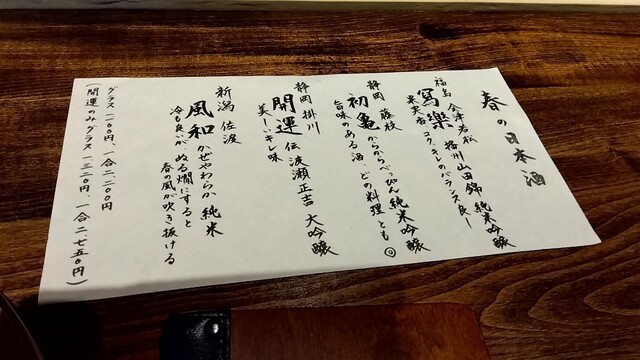 春の日本酒
福島 会津若松
寫樂 播州山田錦 純米吟醸
果実香、コク、キレのバランス良し
静岡 藤枝
初亀 からからべっぴん 純米吟醸
旨味のある酒、どの料理とも◎
静岡 掛川
開運 伝 波瀬正吉 大吟醸
美しいキレ味
新潟 佐渡
風和 かぜやわらか 純米
冷も良いが、ぬる燗にすると
春の風が吹き抜ける
グラス一一〇〇円、一合二、二〇〇円
(開運のみグラス一、三二〇円、一合二、七五〇円)